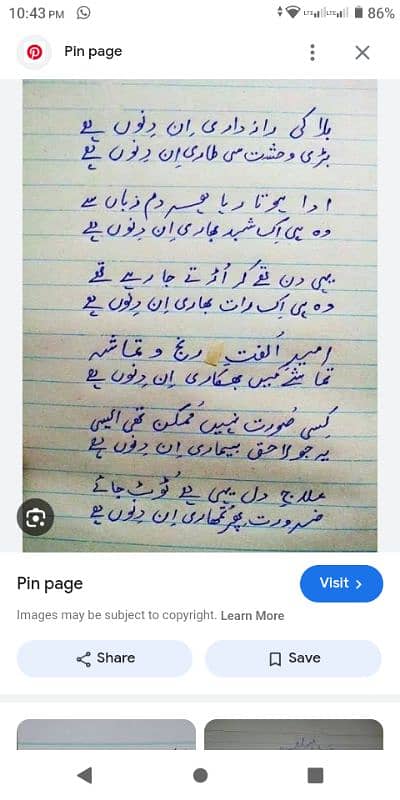 10:43 PM
86%
Pin page
بلا کی رازداری اِن دِنوں ہے
بڑی وحشت سی طاری اِن دِنوں ہے
ادا ہوتا رہا ہر دم زباں سے
وہ ہی اِک شبد بھاری اِن دِنوں ہے
یہی دن تھے کہ اُڑتے جا رہے تھے
وہ ہی اک رات بھاری اِن دِنوں ہے
اُمیدِ اُلفت رنج و تماشہ
تماشے میں بھکاری اِن دِنوں ہے
کِسی صُورت نہیں مُمکن تھی ایسی
یہ جو لاحق بیماری اِن دِنوں ہے
علاجِ دل یہی ہے ٹُوٹ جائے
ضرورت پھر تُمھاری اِن دِنوں ہے
Pin page
Visit
Images may be subject to copyright. Learn More
Share
Save